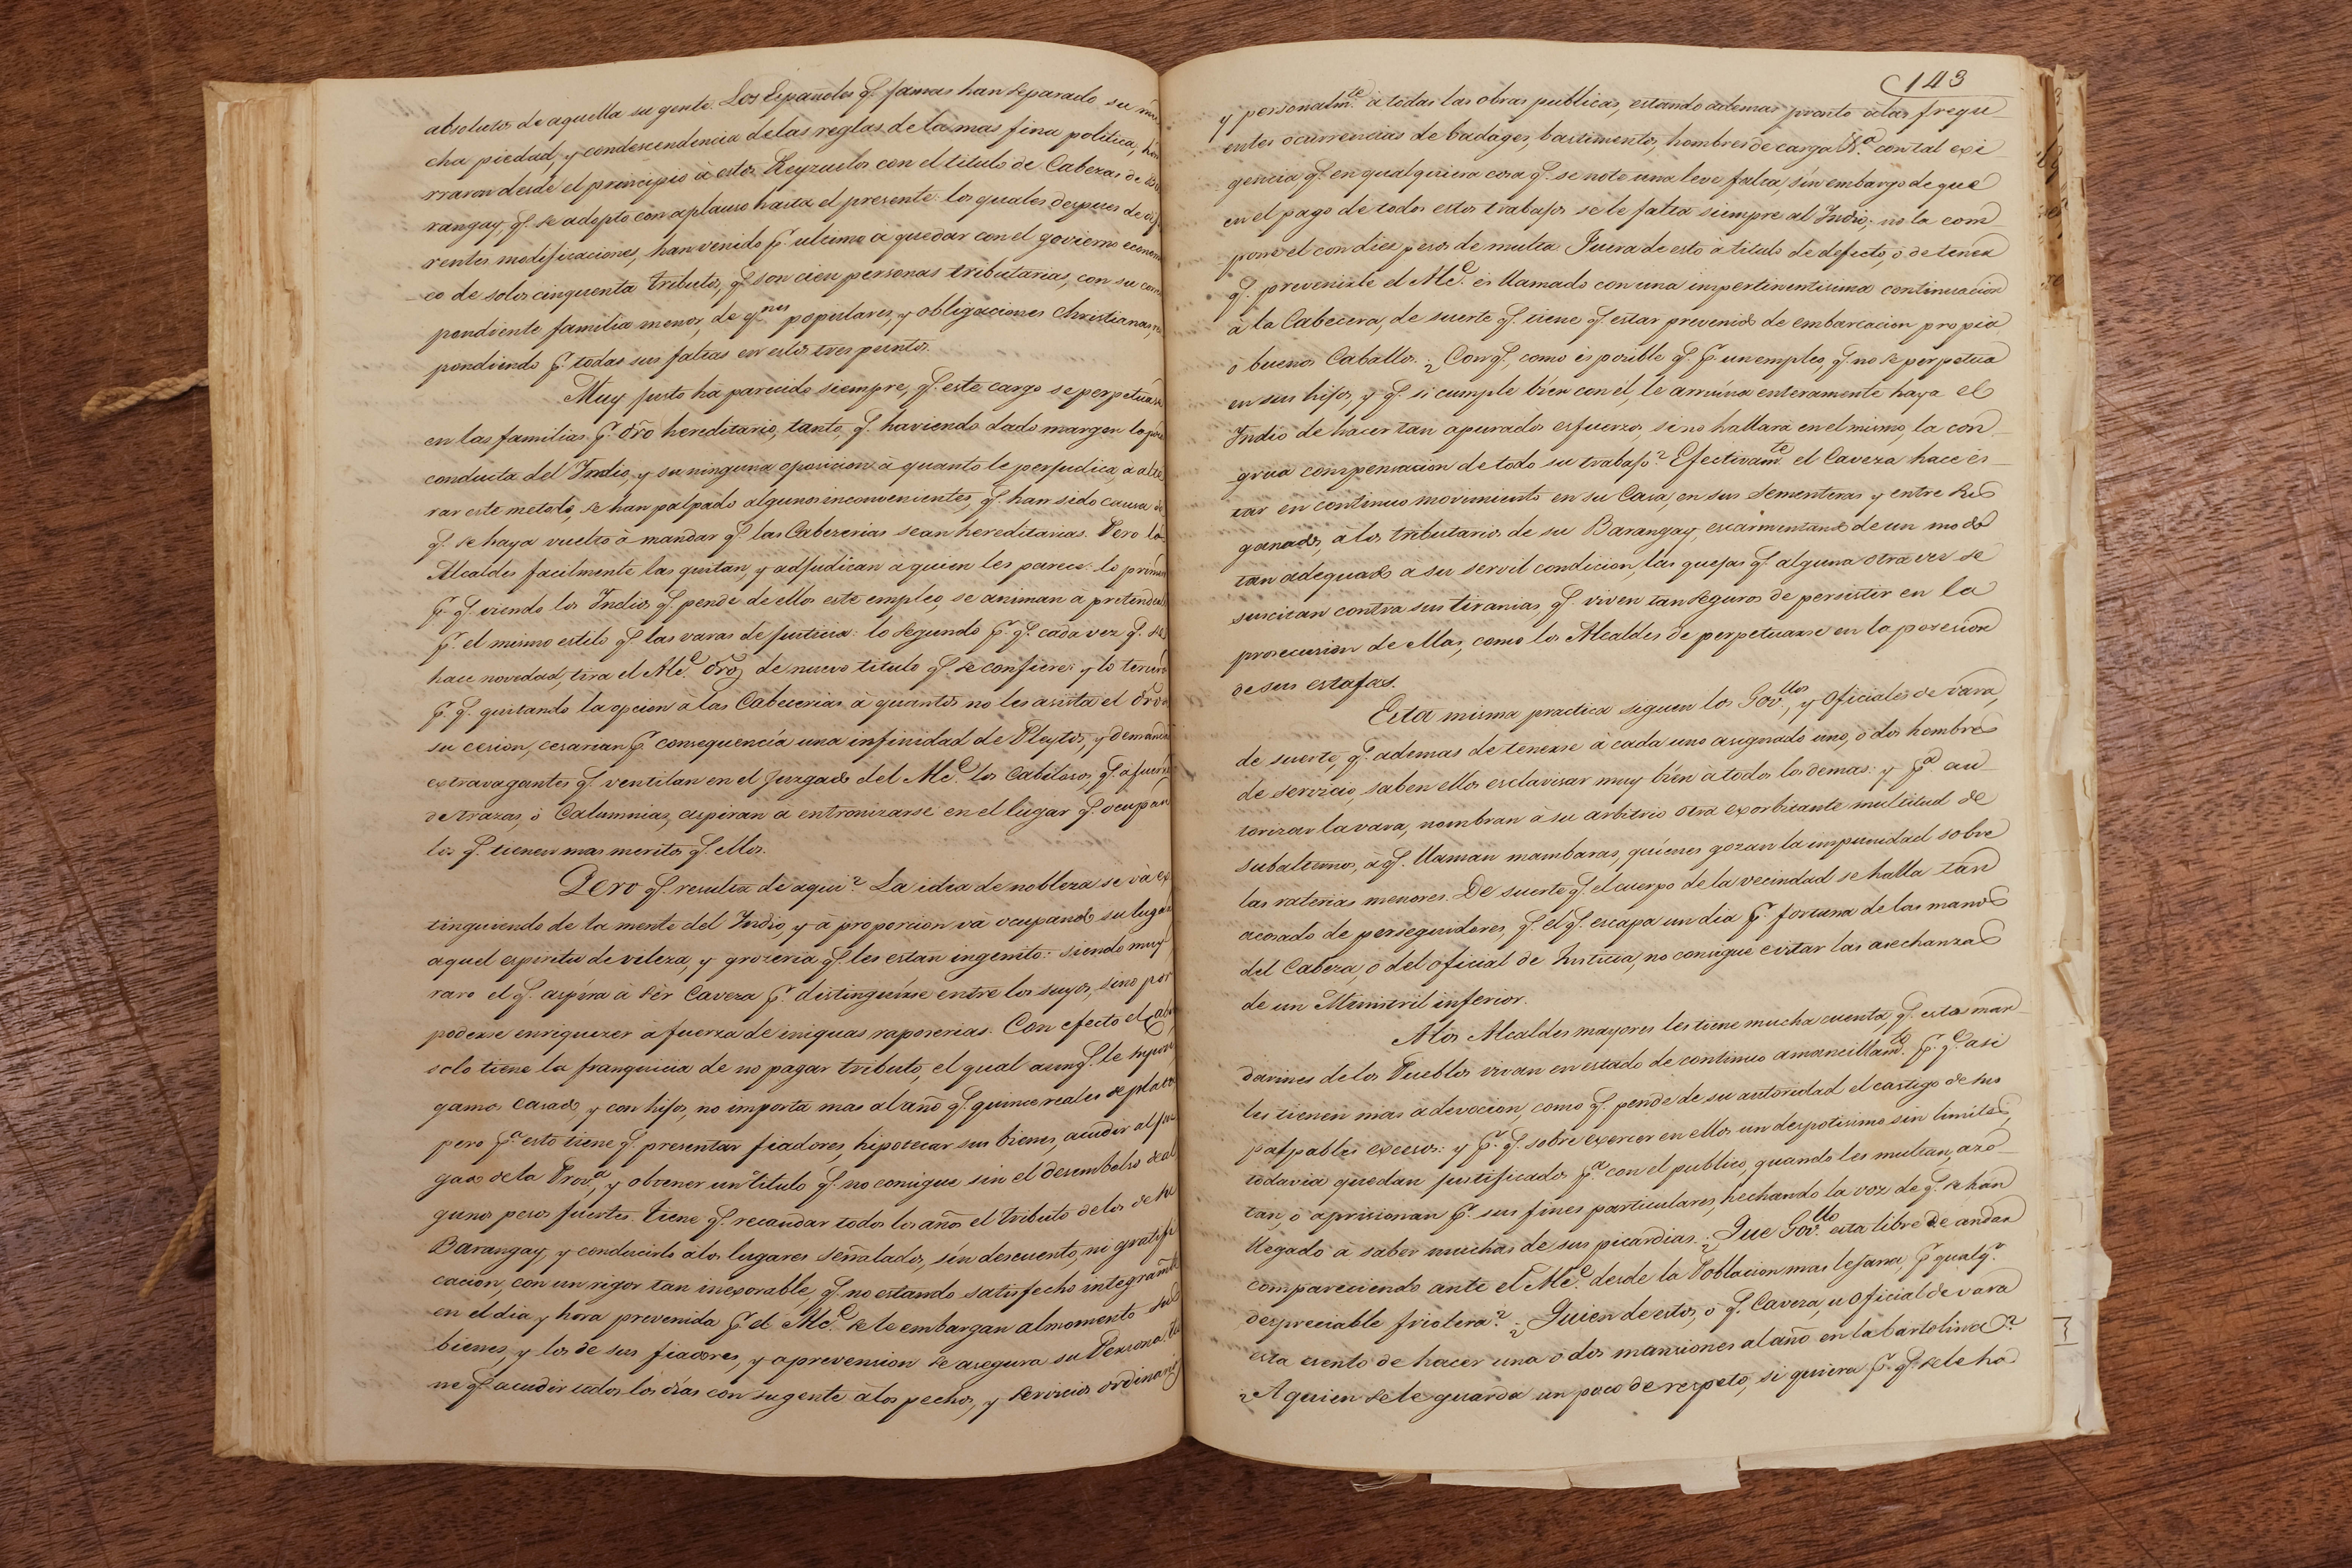 absolutos de aquella su gente. Los Españoles q.e jamas han separado su mu
cha piedad, y condescendencia delas reglas de la mas fina politica, hon
rraron desde el principio à estos Reyzuelos con el titulo de Cabezas de Ba
rangay, q.e se adopto con aplauso hasta el presente: los quales despues de
rentes modificaciones, han venido p.r ultimo à quedar con el govierno econom
co de solos cinquenta tributos, q.e son cien personas tributarias, con su
pendiente familia menor, de q.nes populares, y obligaciones Christianas,
pondiendo p.r todas sus faltas en estos tres puntos.
Muy justo ha parecido siempre, q.e este cargo se perpetuase
en las familias p.r dro hereditario, tanto, q.e haviendo dado margen la
conducta del Indio, y su ninguna oposicion à quanto le perjudica, a alte
rar este metodo, se han palpado algunos inconvenientes, q.e han sido causa de
q.e se haya vuelto à mandar q.e las Cabezerias sean hereditarias. Pero los
Alcaldes facilmente las quitan, y adjudican à quien les parece: lo primero
p.r q.e viendo los Indios q.e pende de ellos este empleo, se animan a pretenderle
p.r el mismo estilo q.e las varas de justicia: lo segundo p.r q.e cada vez q.e se
hace novedad, tira el Alc.e dros de nuevo titulo q.e se confiere: y lo tercero
p.r q.e quitando la opcion à las Cabecerias à quantos no les asista el dro de
su cesion, cesarian p.r consequencia una infinidad de Pleytos, y demandas
extravagantes q.e ventilan en el Juzgado del Alc.e los Cabilosos, q.e à fuerza
de trazas, ò Calumnias, aspiran à entronizarse en el lugar q.e ocupan
los q.e tienen mas meritos q.e ellos.
Pero q.e resulta de aqui? La idea de nobleza se và ex
tinguiendo de la mente del Indio, y à proporcion và ocupando su lugar
aquel espiritu de vileza, y groseria q.e les estan ingenito: siendo muy
raro el q.e aspira à sèr Caveza p.r distinguirse entre los suyos, sino por
poderse enriquezer à fuerza de iniquas raposerias. Con efecto el
solo tiene la franquicia de no pagar tributo, el qual aunq.e le supon
gamos casado, y con hijos, no importa mas al año q.e quince reales de plata
pero p.a esto tiene q.e presentar fiadores, hipotecar sus bienes, acudir al juz
gado de la Prov.a, y obtener un titulo q.e no consigue sin el desembolso de al
gunos pesos fuertes. Tiene q.e recaudar todos los años el tributo de los de su
Barangay, y conducirlo a los lugares señalados, sin descuento, ni gratifi
cacion, con un rigor tan inexorable, q.e no estando satisfecho integram.te
en el dia y hora prevenida p.r el Alc.e se le embargan al momento sus
bienes, y los de sus fiadores, y a prevension se asegura su Persona.
ne q.e acudir todos los dias con su gente à los pechos, y servicios ordinarios
143
y personalm.te à todas las obras publicas, estando ademas pronto à las frequ
entes ocurrencias de badages, bastimentos, hombres de carga &.a con tal exi
gencia, q.e en qualquiera cosa q.e se note una leve falta, sin embargo de que
en el pago de todos estos trabajos se le falta siempre al Indio, no la com
pone el con diez pesos de multa. Fuera de esto à titulo de defecto, ò de tener
q.e prevenirle el Alc.e es llamado con una impertinentisima continuacion
à la Cabecera, de suerte q.e tiene q.e estar prevenido de embarcacion propia
ò buenos Caballos. ¿Con q.e, como es posible q.e p.r un empleo, q.e no se perpetua
en sus hijos, y q.e si cumple bien con èl, le arruina enteramente haya el
Indio de hacer tan apurados esfuerzos, si no hallara en el mismo, la con
grua compensacion de todo su trabajo? Efectivam.te el Caveza hace es
tar en continuo movimiento en su Casa, en sus sementeras y entre sus
ganados, à los tributarios de su Barangay, escarmentando de un modo
tan adequado à su servil condicion, las quejas q.e alguna otra vez se
suscitan contra sus tiranias, q.e viven tan seguros de persistir en la
prosecusion de ellas, como los Alcaldes de perpetuarse en la posesion
de sus estafas.
Esta misma practica siguen los Gov.llos, y Oficiales de vara,
de suerte, q.e ademas de tenerse à cada uno asignado uno, ò dos hombres
de servicio, saben ellos esclavizar muy bien à todos los demas: y p.a au
torizar la vara, nombran à su arbitrio otra exorbitante multitud de
subalternos, à q.e llaman mambaras, quienes gozan la impunidad sobre
las raterias menores. De suerte q.e el cuerpo de la vecindad se halla tan
acosado de perseguidores, q.e el q.e escapa un dia p.r fortuna de las manos
del Cabeza, ò del oficial de Justicia, no consigue evitar las asechanzas
de un Ministril inferior.
A los Alcaldes mayores les tiene mucha cuenta, q.e estos man
darines de los Pueblos vivan en estado de continuo amancillam.to p.r q.e asi
les tienen mas a devocion, como q.e pende de su autoridad el castigo de sus
palpables excesos: y p.r q.e sobre exercer en ellos un despotismo sin limites,
todavia quedan justificados p.a con el publico, quando les multan, azo
tan, ò aprisionan p.r sus fines particulares, hechando la voz de q.e se han
llegado à saber muchas de sus picardias. ¿Que Gov.llo esta libre de andar
compareciendo ante el Alc.e desde la Poblacion mas lejana, p.r qualq.r
despreciable friolera? ¿Quien de estos, ò q.e Caveza, u Oficial de vara
esta esento de hacer una ò dos mansiones al año en la bartolina?
¿A quien se le guarda un poco de respeto, si quiera p.r q.e se le ha